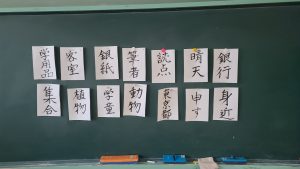 学用品 客室 銀紙 筆者 読点 晴天 銀行
集合 植物 学童 動物 東京都 申す 身近